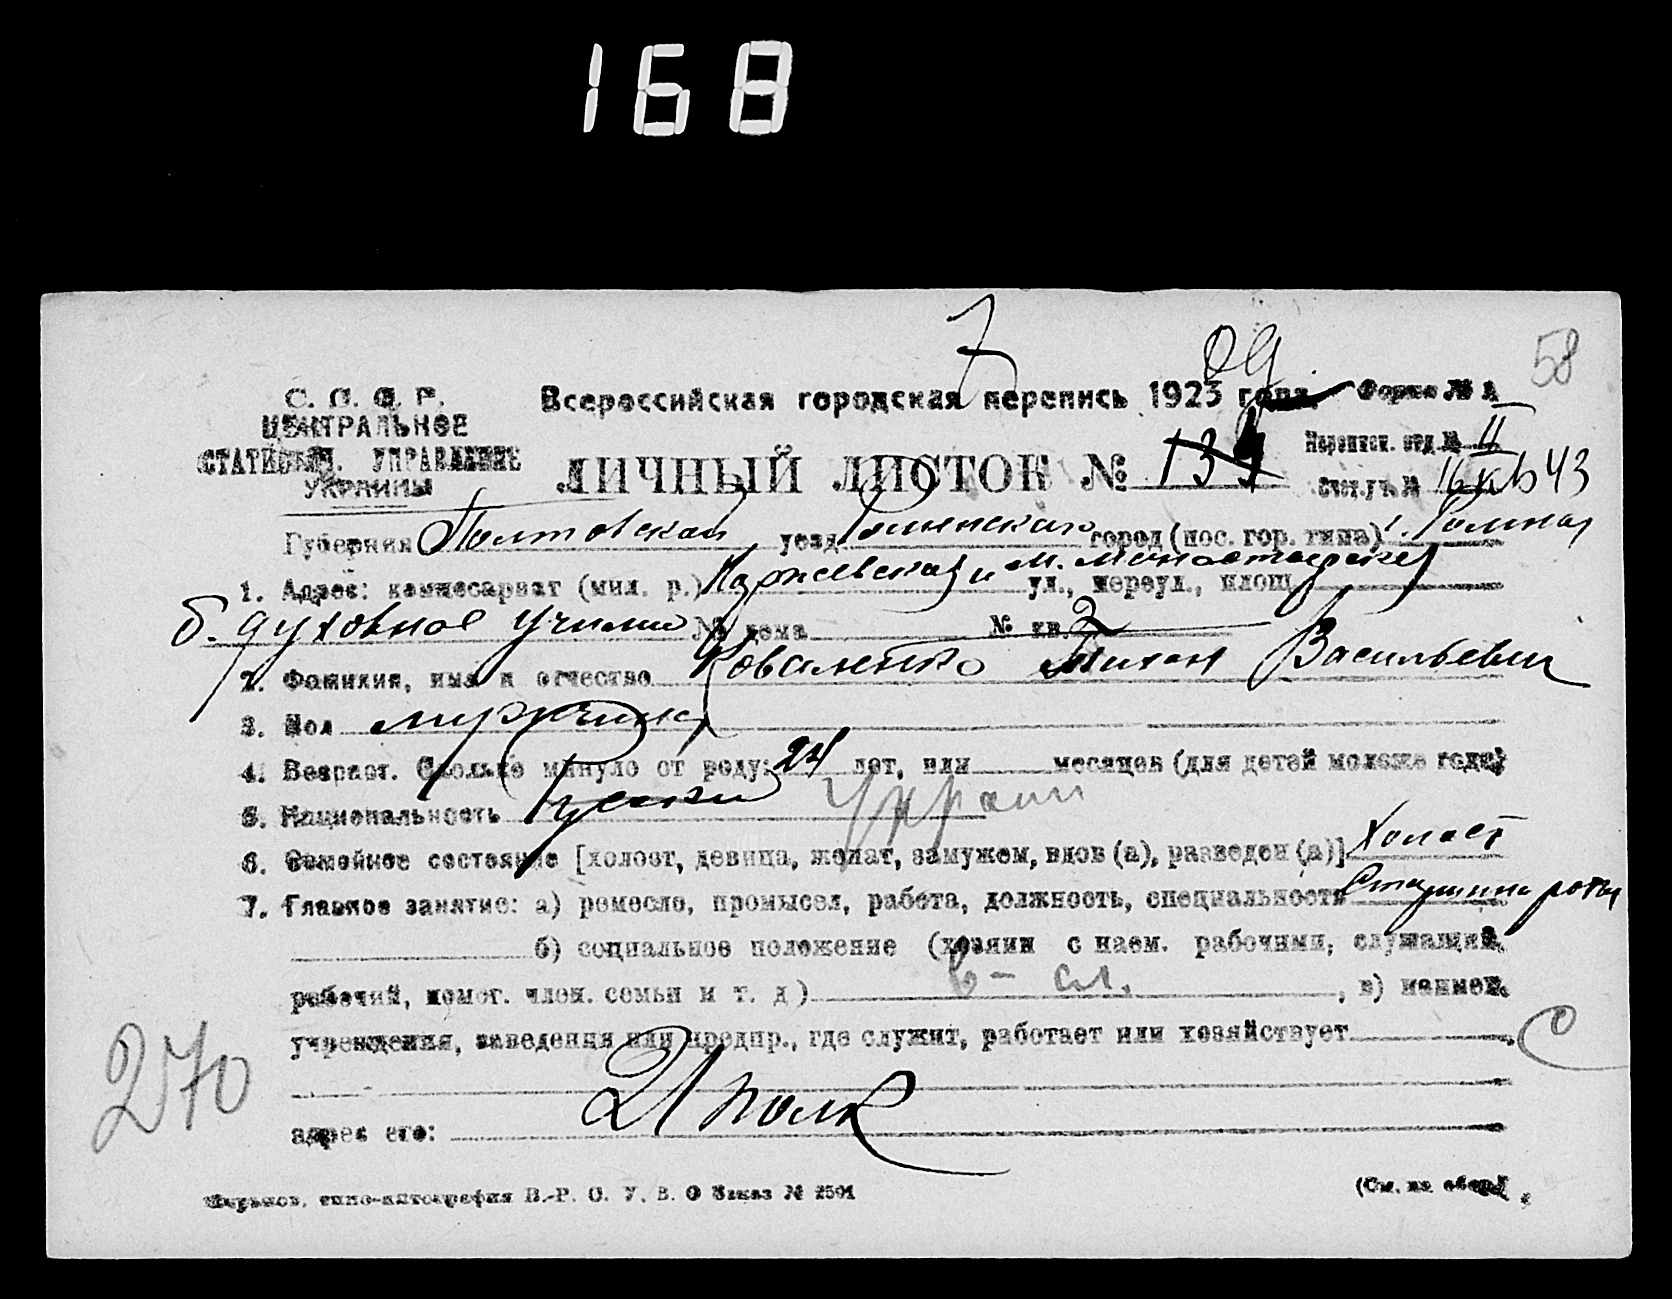 168
7
09
58
С. С. С. Р.
ЦЕНТРАЛЬНОЕ
СТАТИСТИЧ. УПРАВЛЕНИЕ
УКРАИНЫ
Всероссийская городская перепись 1923 года. Форма № А
Переписн. отд. № II
ЛИЧНЫЙ ЛИСТОК № 139
Счет. уч. № 16 кв 43
Губерния Полтовская уезд Роменская город (пос. гор. типа) Ромная
1. Адрес: комиссариат (мил. р.) и м. ул., переул., площ.
б. духовное училищ № дома № кв. 2
2. Фамилия, имя и отчество Коваленко Тихон Васильевич
3. Пол мужчина
4. Возраст. Сколько минуло от роду: 24 лет, или месяцев (для детей моложе года)
5. Национальность Руский Украин
6. Семейное состояние [холост, девица, женат, замужем, вдов (а), разведен (а)] Холост
7. Главное занятие: а) ремесло, промысел, работа, должность, специальность Старшина роты
б) социальное положение (хозяин с наем. рабочими, служащий,
рабочий, помог. член. семьи и т. д) в - сл. , в) наимен.
учреждения, заведения или предпр., где служит, работает или хозяйствует
С
270
адрес его: 21 полк
Харьков, типо-литография В.-Р. С. У. В. О Заказ № 2501
(См. на обор.)